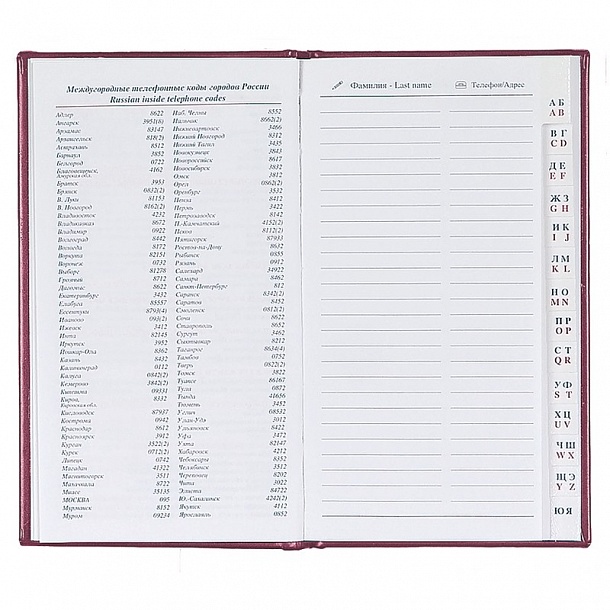 Междугородные телефонные коды городов России
Russian inside telephone codes
Адлер 8622
Ангарск 3951(6)
Арзамас 83147
Архангельск 818(2)
Астрахань 8512
Барнаул 3852
Белгород 0722
Благовещенск, 4162
Амурская обл.
Братск 3953
Брянск 0832(2)
В. Луки 81153
В. Новгород 8162(2)
Владивосток 4232
Владикавказ 8672
Владимир 0922
Волгоград 8442
Вологда 8172
Воркута 82151
Воронеж 0732
Выборг 81278
Грозный 8712
Дагомыс 8622
Екатеринбург 3432
Елабуга 85557
Ессентуки 8793(4)
Иваново 093(2)
Ижевск 3412
Инта 82145
Иркутск 3952
Йошкар-Ола 8362
Казань 8432
Калининград 0112
Калуга 0842(2)
Кемерово 3842(2)
Кинешма 09331
Киров, 8332
Кировская обл.
Кисловодск 87937
Кострома 0942
Краснодар 8612
Красноярск 3912
Курган 3522(2)
Курск 0712(2)
Липецк 0742
Магадан 41322
Магнитогорск 3511
Махачкала 8722
Миасс 35135
МОСКВА 095
Мурманск 8152
Муром 09234
Наб. Челны 8552
Нальчик 8662(2)
Нижневартовск 3466
Нижний Новгород 8312
Нижний Тагил 3435
Новокузнецк 3843
Новороссийск 8617
Новосибирск 3832
Омск 3812
Орел 0862(2)
Оренбург 3532
Пенза 8412
Пермь 3422
Петрозаводск 8142
П.-Камчатский 4152(2)
Псков 8112(2)
Пятигорск 87933
Ростов-на-Дону 8632
Рыбинск 0855
Рязань 0912
Салехард 34922
Самара 8462
Санкт-Петербург 812
Саранск 8342(2)
Саратов 8452
Смоленск 0812(2)
Сочи 8622
Ставрополь 8652
Сургут 3462
Сыктывкар 8212
Таганрог 8634(4)
Тамбов 0752
Тверь 0822(2)
Томск 3822
Туапсе 86167
Тула 0872
Тында 41656
Тюмень 3452
Углич 08532
Улан-Удэ 3012
Ульяновск 8422
Уфа 3472
Ухта 82147
Хабаровск 4212
Чебоксары 8352
Челябинск 3512
Череповец 8202
Чита 3022
Элиста 84722
Ю.-Сахалинск 4242(2)
Якутск 4112
Ярославль 0852
Фамилия - Last name
Телефон/Адрес
А Б
A B
В Г
C D
Д Е
E F
Ж З
G H
И К
I J
Л М
K L
Н О
M N
П Р
O P
С Т
Q R
У Ф
S T
Х Ц
U V
Ч Ш
W X
Щ Э
Y Z
Ю Я